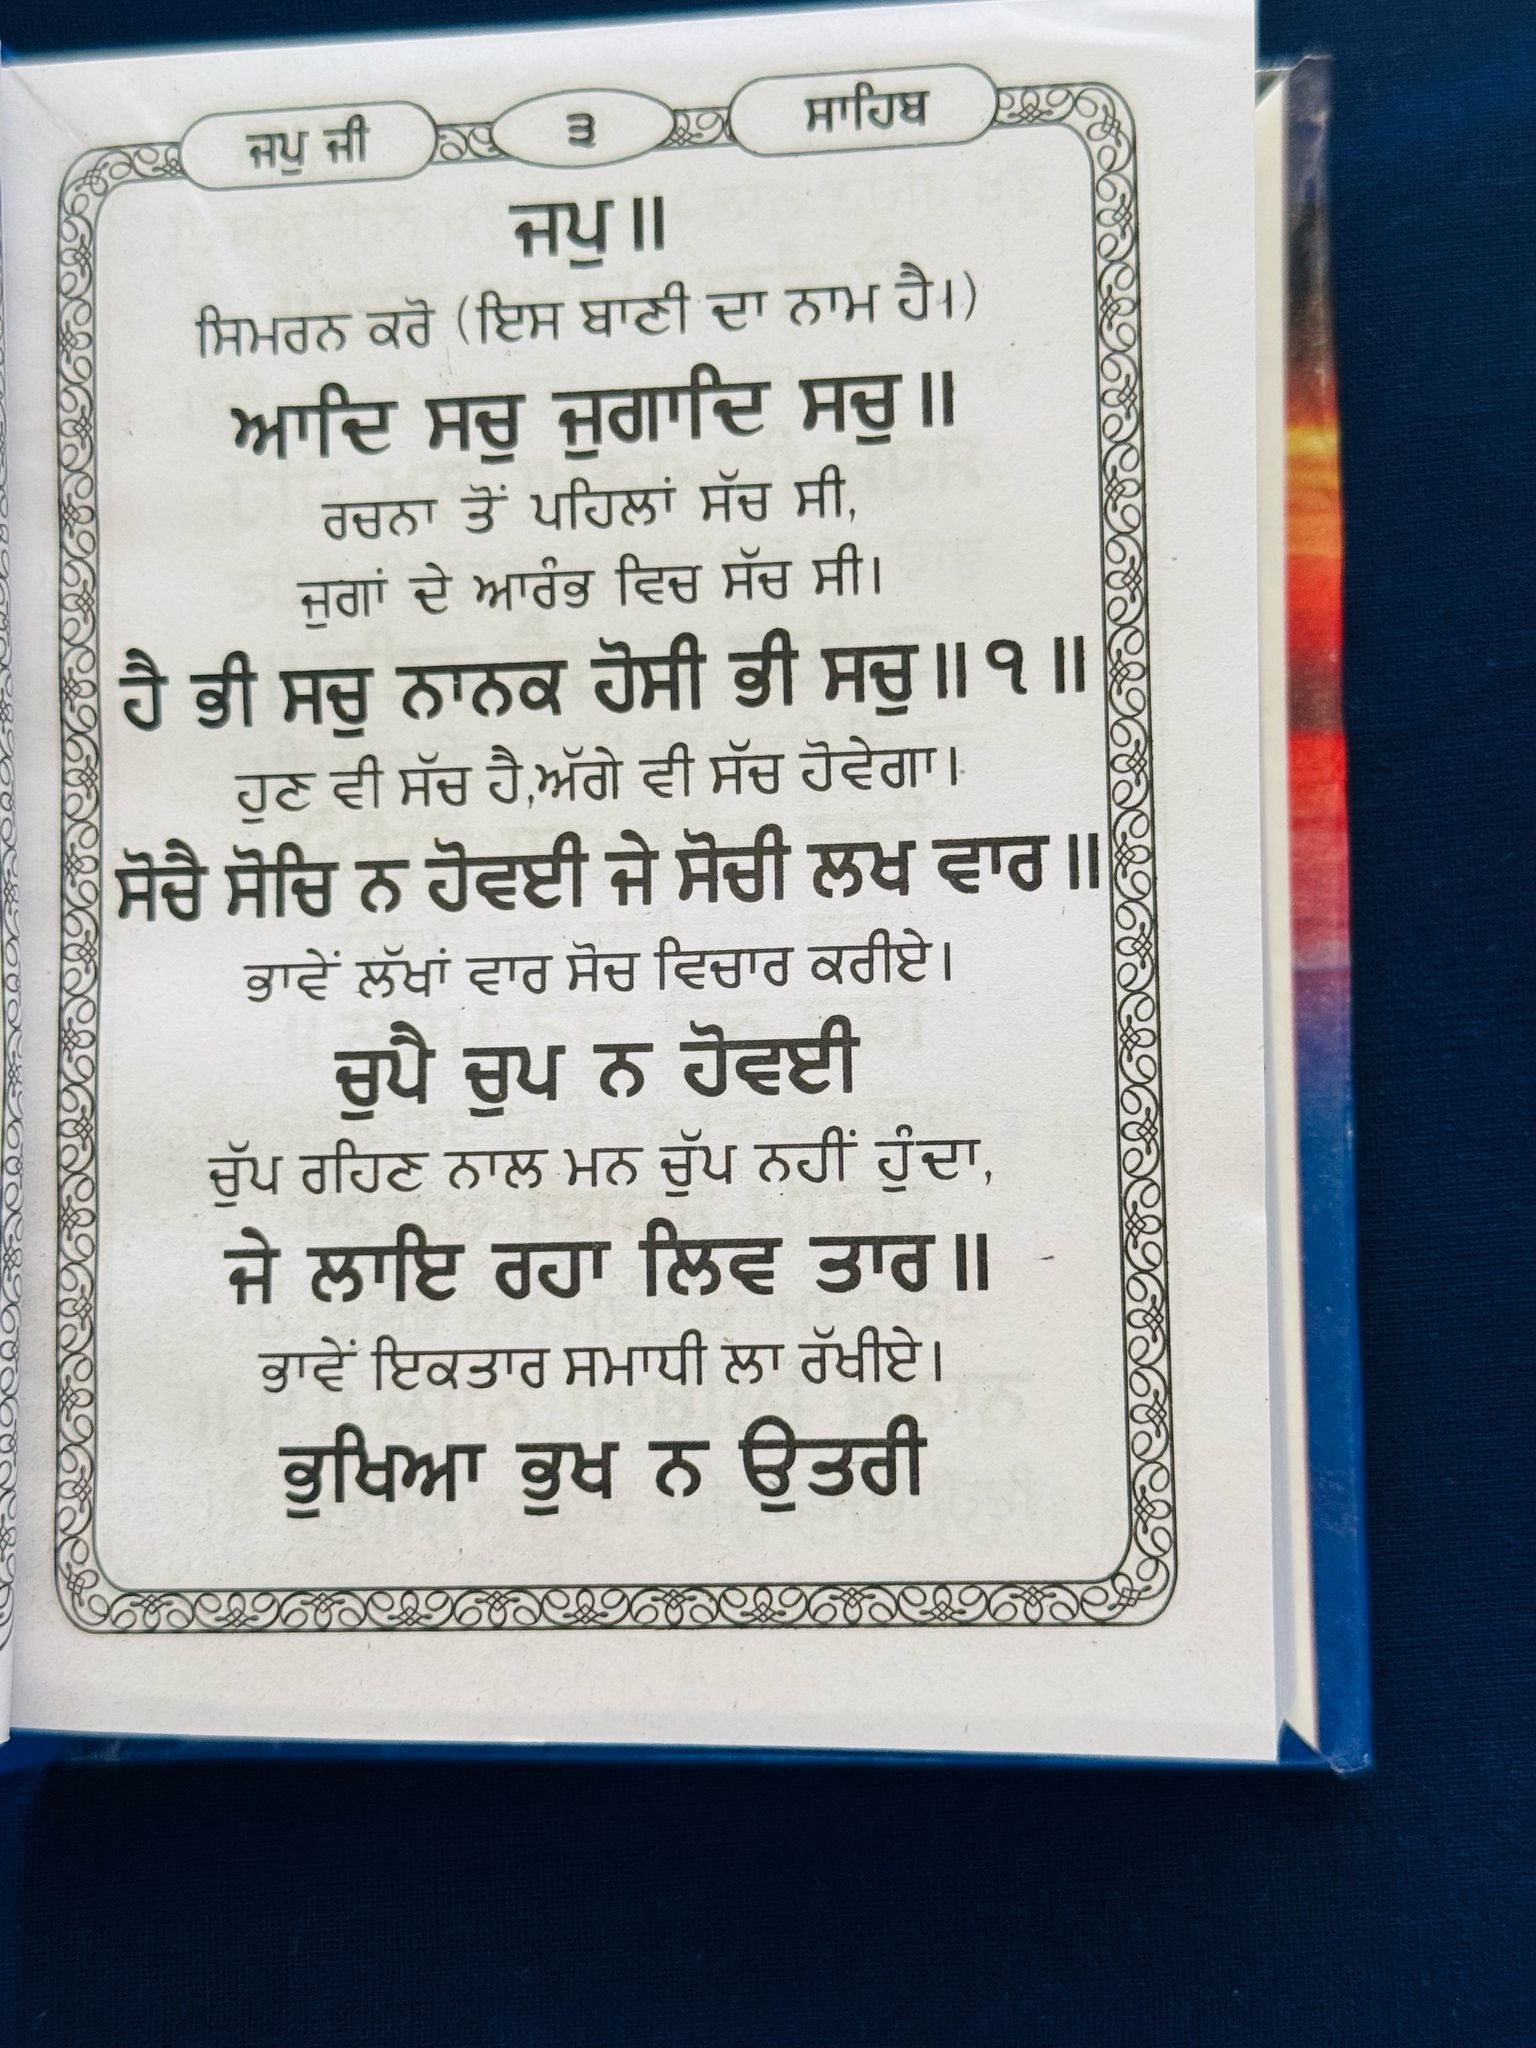 ਜਪੁ ਜੀ ੩ ਸਾਹਿਬ
ਜਪੁ॥
ਸਿਮਰਨ ਕਰੋ (ਇਸ ਬਾਣੀ ਦਾ ਨਾਮ ਹੈ।)
ਆਦਿ ਸਚੁ ਜੁਗਾਦਿ ਸਚੁ॥
ਰਚਨਾ ਤੋਂ ਪਹਿਲਾਂ ਸੱਚ ਸੀ,
ਜੁਗਾਂ ਦੇ ਆਰੰਭ ਵਿਚ ਸੱਚ ਸੀ।
ਹੈ ਭੀ ਸਚੁ ਨਾਨਕ ਹੋਸੀ ਭੀ ਸਚੁ॥੧॥
ਹੁਣ ਵੀ ਸੱਚ ਹੈ,ਅੱਗੇ ਵੀ ਸੱਚ ਹੋਵੇਗਾ।
ਸੋਚੈ ਸੋਚਿ ਨ ਹੋਵਈ ਜੇ ਸੋਚੀ ਲਖ ਵਾਰ॥
ਭਾਵੇਂ ਲੱਖਾਂ ਵਾਰ ਸੋਚ ਵਿਚਾਰ ਕਰੀਏ।
ਚੁਪੈ ਚੁਪ ਨ ਹੋਵਈ
ਚੁੱਪ ਰਹਿਣ ਨਾਲ ਮਨ ਚੁੱਪ ਨਹੀਂ ਹੁੰਦਾ,
ਜੇ ਲਾਇ ਰਹਾ ਲਿਵ ਤਾਰ॥
ਭਾਵੇਂ ਇਕਤਾਰ ਸਮਾਧੀ ਲਾ ਰੱਖੀਏ।
ਭੁਖਿਆ ਭੁਖ ਨ ਉਤਰੀ